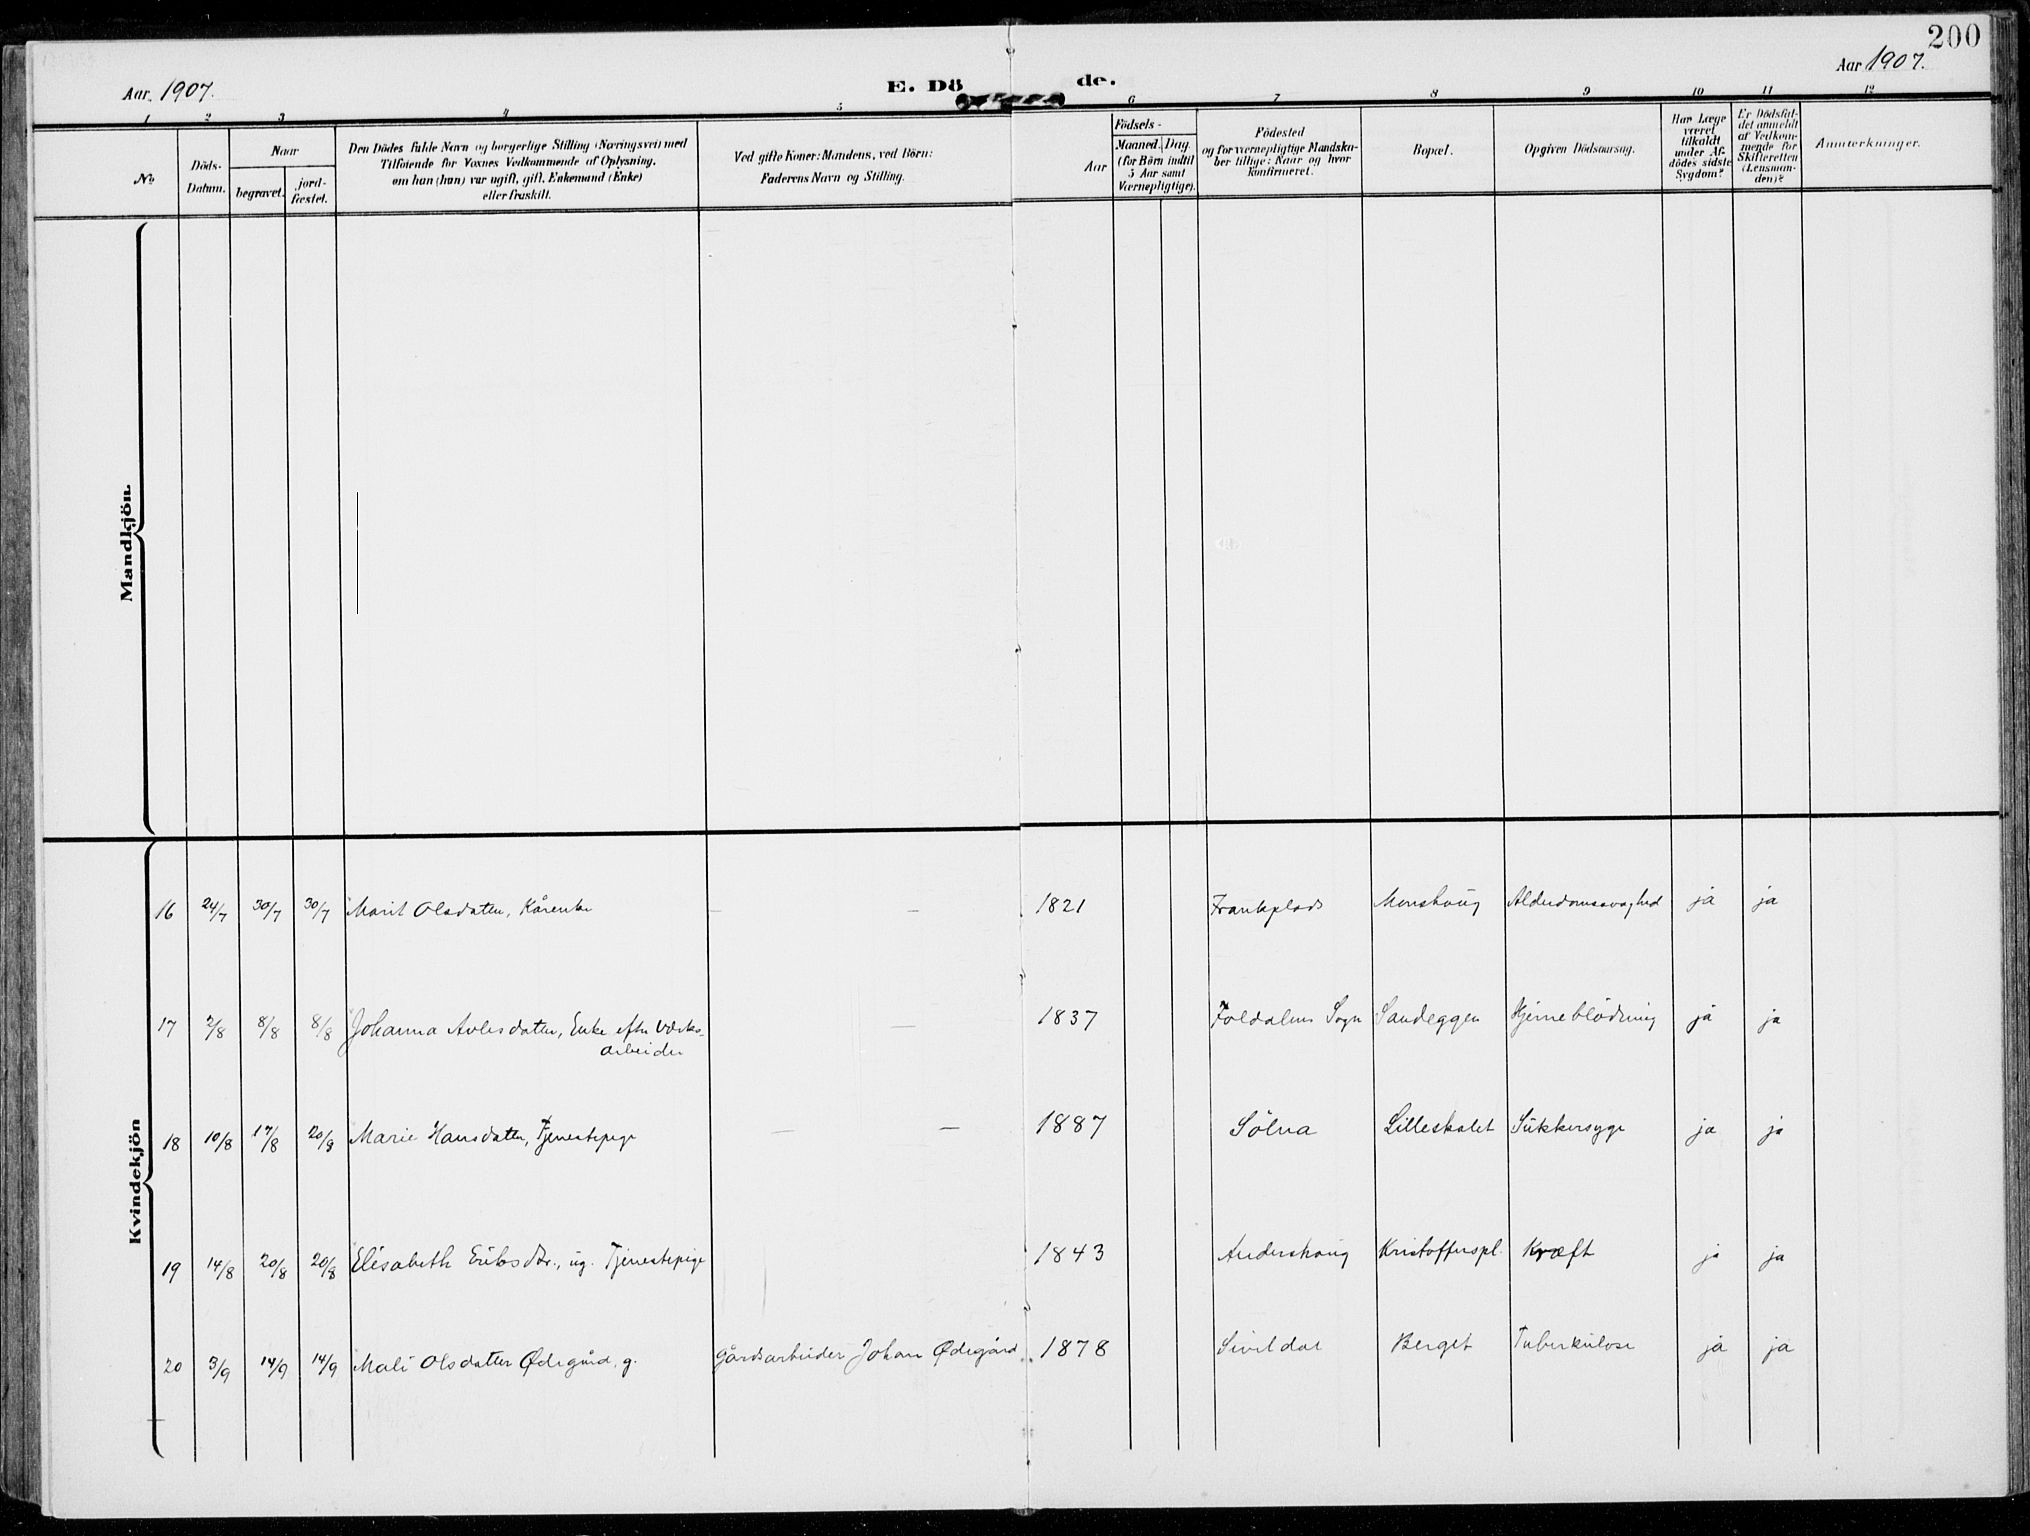 200
Aar 1907.
E. Döde.
Aar 1907.
1 2 3 4 5 6 7 8 9 10 11 12
No
Döds-
Datum.
Naar
begravet.
jord-
fæstet.
Den Dödes fulde Navn og borgerlige Stilling (Næringsvei) med
Tilföiende for Voxnes Vedkommende af Oplysning,
om han (hun) var ugift, gift, Enkemand (Enke)
eller fraskilt.
Ved gifte Koner: Mandens, ved Börn:
Faderens Navn og Stilling.
Aar
Födsels-
Maaned. Dag.
(for Börn indtil
5 Aar samt
Værnepligtige).
Födested
og for værnepligtige Mandska-
ber tillige: Naar og hvor
konfirmeret.
Bopæl.
Opgiven Dödsaarsag.
Har Læge
været
tilkaldt
under Af-
dödes sidste
Sygdom?
Er Dödsfal-
det anmeldt
af Vedkom-
mende for
Skifteretten
(Lensman-
den)?
Anmærkninger.
Mandkjön.
Kvindekjön
16 24/7 30/7 30/7 Marit Olsdatter, Kårenke — — 1821 Frankplads Monshaug Alderdomssvaghed ja ja
17 2/8 8/8 8/8 Johanna Avlesdatter, Enke efter Værks- — 1837 Foldalens Sogn Sandeggen Hjerneblödning ja ja
arbeider
18 10/8 17/8 20/9 Marie Hansdatter, Tjenestepige — — 1887 Sölna Lilleskalet Sukkersyge ja ja
19 14/8 20/8 20/8 Elisabeth Eriksdtr., ug. Tjenestepige 1843 Andershaug Kristofferspl. Kræft ja ja
20 3/9 14/9 14/9 Mali Olsdatter Ødegård, g. Gårdsarbeider Johan Ødegård 1878 Sivildal Berget Tuberkulose ja ja